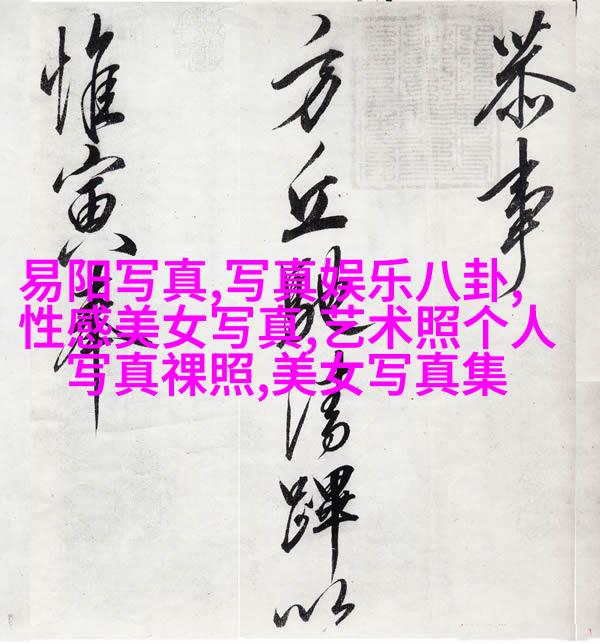 恭事
方丘清蹕以
惟寅奉
易阳写真,写真娱乐八卦,
性感美女写真,艺术照个人
写真祼照,美女写真集